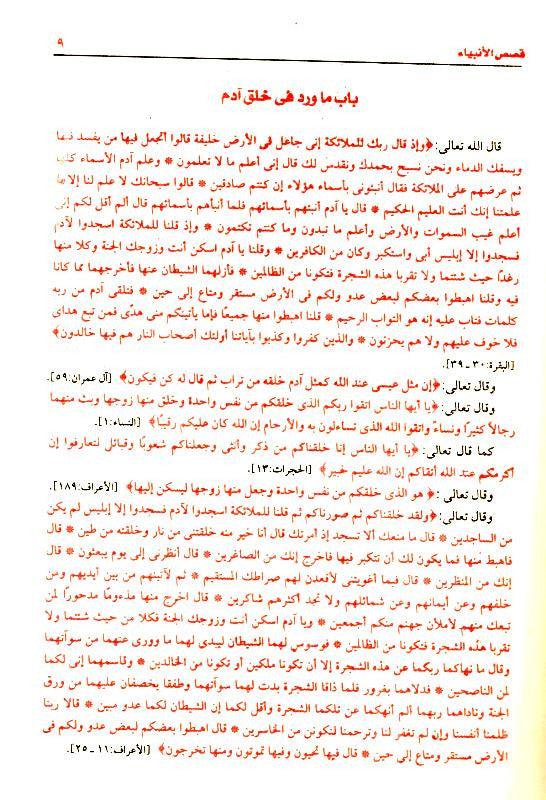 قصص الأنبياء
٩
باب ما ورد فى خلق آدم
قال الله تعالى: ﴿وإذ قال ربك للملائكة إنى جاعل فى الأرض خليفة قالوا أتجعل فيها من يفسد فيها
ويسفك الدماء ونحن نسبح بحمدك ونقدس لك قال إنى أعلم ما لا تعلمون * وعلم آدم الأسماء كلها
ثم عرضهم على الملائكة فقال أنبئونى بأسماء هؤلاء إن كنتم صادقين * قالوا سبحانك لا علم لنا إلا ما
علمتنا إنك أنت العليم الحكيم * قال يا آدم أنبئهم بأسمائهم فلما أنبأهم بأسمائهم قال ألم أقل لكم إنى
أعلم غيب السموات والأرض وأعلم ما تبدون وما كنتم تكتمون * وإذ قلنا للملائكة اسجدوا لآدم
فسجدوا إلا إبليس أبى واستكبر وكان من الكافرين * وقلنا يا آدم اسكن أنت وزوجك الجنة وكلا منها
رغدًا حيث شئتما ولا تقربا هذه الشجرة فتكونا من الظالمين * فأزلهما الشيطان عنها فأخرجهما مما كانا
فيه وقلنا اهبطوا بعضكم لبعض عدو ولكم فى الأرض مستقر ومتاع إلى حين * فتلقى آدم من ربه
كلمات فتاب عليه إنه هو التواب الرحيم * قلنا اهبطوا منها جميعًا فإما يأتينكم منى هدًى فمن تبع هداى
فلا خوف عليهم ولا هم يحزنون * والذين كفروا وكذبوا بآياتنا أولئك أصحاب النار هم فيها خالدون﴾
[البقرة:٣٠ ـ ٣٩].
وقال تعالى: ﴿إن مثل عيسى عند الله كمثل آدم خلقه من تراب ثم قال له كن فيكون﴾ [آل عمران:٥٩].
وقال تعالى: ﴿يا أيها الناس اتقوا ربكم الذى خلقكم من نفس واحدة وخلق منها زوجها وبث منهما
رجالاً كثيرًا ونساءً واتقوا الله الذى تساءلون به والأرحام إن الله كان عليكم رقيبًا﴾ [النساء:١].
كما قال تعالى: ﴿يا أيها الناس إنا خلقناكم من ذكر وأنثى وجعلناكم شعوبًا وقبائل لتعارفوا إن
أكرمكم عند الله أتقاكم إن الله عليم خبير﴾ [الحجرات:١٣].
وقال تعالى: ﴿ هو الذى خلقكم من نفس واحدة وجعل منها زوجها ليسكن إليها﴾ [الأعراف:١٨٩].
وقال تعالى: ﴿ولقد خلقناكم ثم صورناكم ثم قلنا للملائكة اسجدوا لآدم فسجدوا إلا إبليس لم يكن
من الساجدين * قال ما منعك ألا تسجد إذ أمرتك قال أنا خير منه خلقتنى من نار وخلقته من طين * قال
فاهبط منها فما يكون لك أن تتكبر فيها فاخرج إنك من الصاغرين * قال أنظرنى إلى يوم يبعثون * قال
إنك من المنظرين * قال فبما أغويتنى لأقعدن لهم صراطك المستقيم * ثم لآتينهم من بين أيديهم ومن
خلفهم وعن أيمانهم وعن شمائلهم ولا تجد أكثرهم شاكرين * قال اخرج منها مذءومًا مدحورًا لمن
تبعك منهم لأملأن جهنم منكم أجمعين * ويا آدم اسكن أنت وزوجك الجنة فكلا من حيث شئتما ولا
تقربا هذه الشجرة فتكونا من الظالمين * فوسوس لهما الشيطان ليبدى لهما ما وورى عنهما من سوآتهما
وقال ما نهاكما ربكما عن هذه الشجرة إلا أن تكونا ملكين أو تكونا من الخالدين * وقاسمهما إنى لكما
لمن الناصحين * فدلاهما بغرور فلما ذاقا الشجرة بدت لهما سوآتهما وطفقا يخصفان عليهما من ورق
الجنة وناداهما ربهما ألم أنهكما عن تلكما الشجرة وأقل لكما إن الشيطان لكما عدو مبين * قالا ربنا
ظلمنا أنفسنا وإن لم تغفر لنا وترحمنا لنكونن من الخاسرين * قال اهبطوا بعضكم لبعض عدو ولكم فى
الأرض مستقر ومتاع إلى حين * قال فيها تحيون وفيها تموتون ومنها تخرجون﴾ [الأعراف:١١ ـ ٢٥].